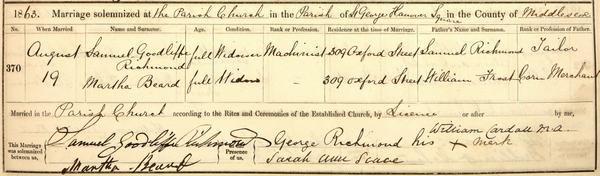 1863. Marriage solemnized at the Parish Church in the Parish of St George Hanover Square in the County of Middlesex
No. When Married Name and Surname. Age. Condition. Rank or Profession. Residence at the time of Marriage. Father's Name and Surname. Rank or Profession of Father.
370 August 19 Samuel Goodliffe Richmond full Widower Machinist 309 Oxford Street Samuel Richmond Tailor
Martha Beard full Widow - 309 Oxford Street William Frost Corn Merchant
Married in the Parish Church according to the Rites and Ceremonies of the Established Church, by Licence or after by me,
William Cardall M.A.
This Marriage was solemnized between us, Samuel Goodliffe Richmond Presence of us George Richmond his X mark
Martha Beard Sarah Ann